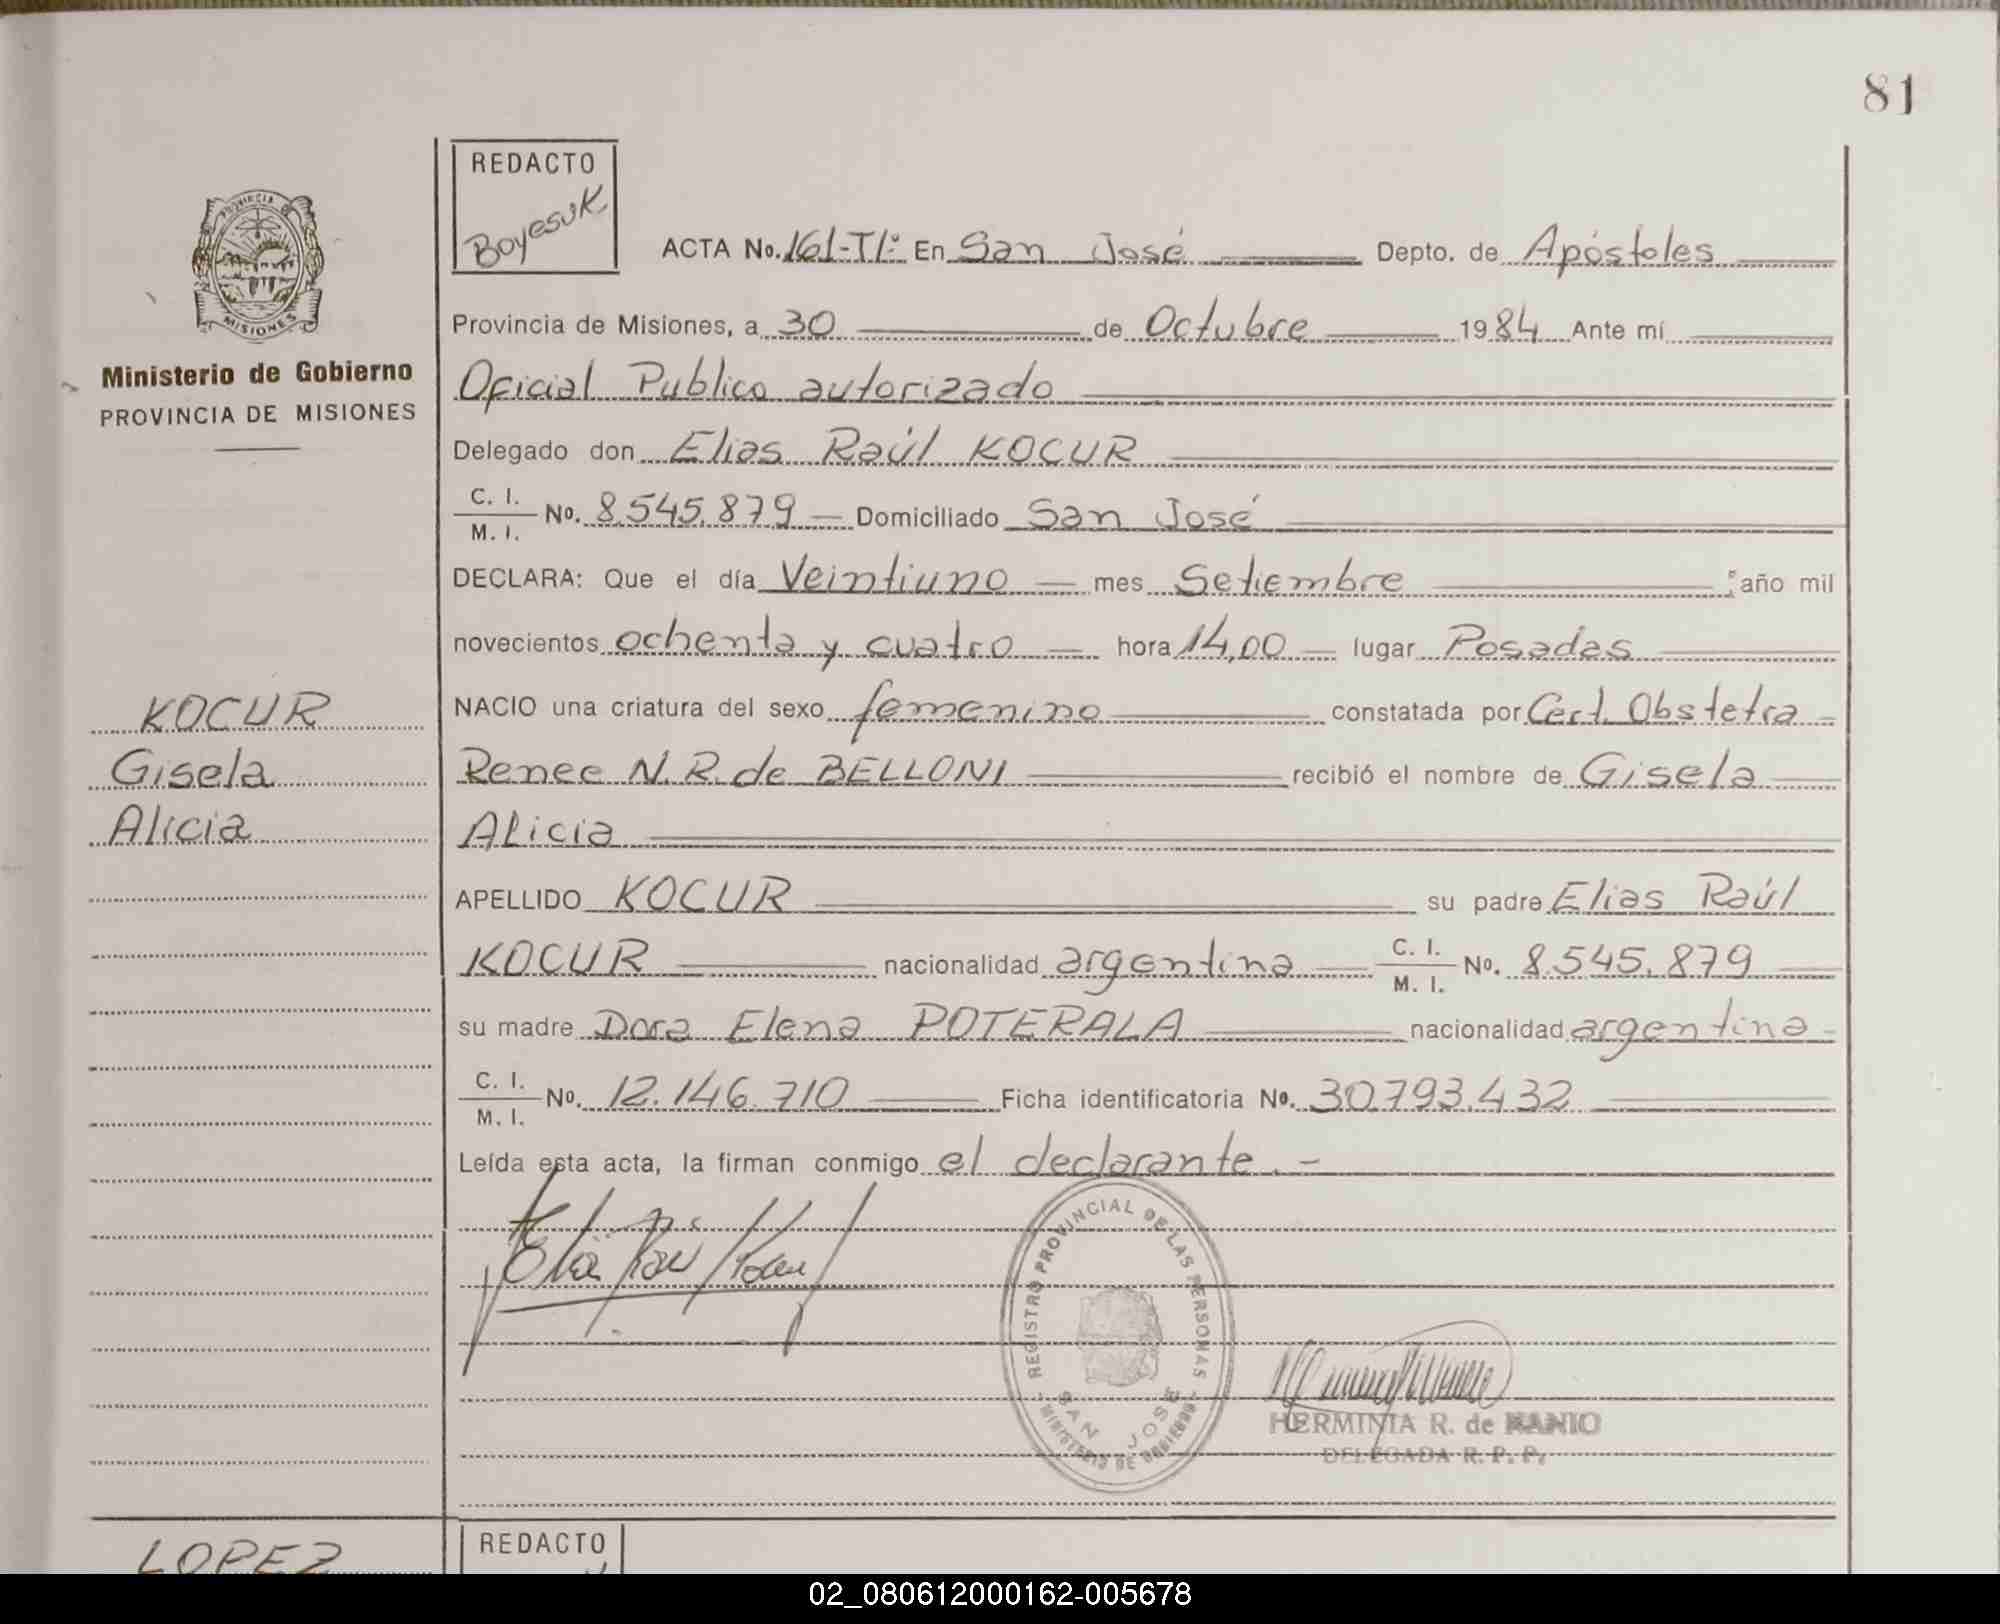 81
PROVINCIA DE
MISIONES
Ministerio de Gobierno
PROVINCIA DE MISIONES
KOCUR
Gisela
Alicia
REDACTO
Boyesuk
ACTA No. 161-T1º En San José Depto. de Apóstoles
Provincia de Misiones, a 30 de Octubre 1984 Ante mí
Oficial Publico autorizado
Delegado don Elias Raúl KOCUR
C. I.
M. I. No. 8.545.879 — Domiciliado San José
DECLARA: Que el día Veintiuno — mes Setiembre ; año mil
novecientos ochenta y cuatro — hora 14,00 — lugar Posadas
NACIO una criatura del sexo femenino constatada por Cert. Obstetra
Renee N.R. de BELLONI recibió el nombre de Gisela
Alicia
APELLIDO KOCUR su padre Elias Raúl
KOCUR nacionalidad argentina — C. I. M. I. No. 8.545.879
su madre Dora Elena POTERALA nacionalidad argentina
C. I.
M. I. No. 12.146.710 Ficha identificatoria No. 30.793.432
Leída esta acta, la firman conmigo el declarante. -
REGISTRO PROVINCIAL DE LAS PERSONAS
SAN JOSE
MINISTERIO DE GOBIERNO
HERMINIA R. de
DELEGADA R. P. P.
LOPEZ
REDACTO
02_080612000162-005678